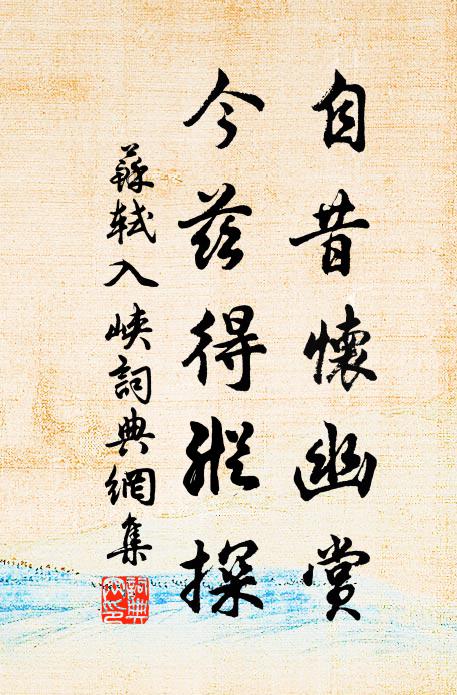 自昔懷幽賞
今茲得縱探
蘇軾入峽詞典網集